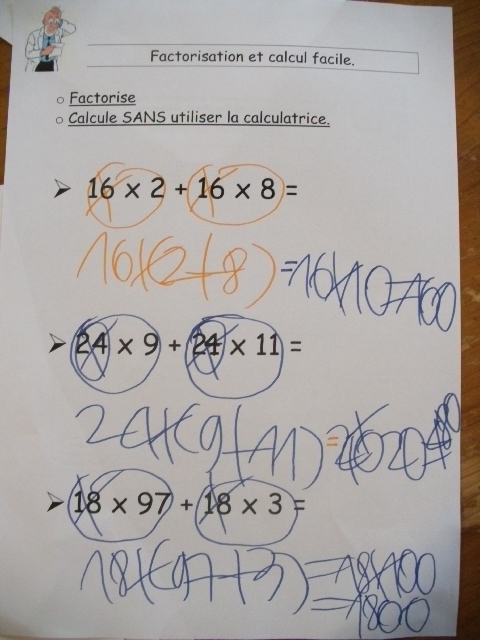 Factorisation et calcul facile.
o Factorise
o Calcule SANS utiliser la calculatrice.
➤ 16 x 2 + 16 x 8 =
16x(2+8) =16x10=160
➤ 24 x 9 + 24 x 11 =
24x(9+11) =
➤ 18 x 97 + 18 x 3 =
18x(97+3) =18x100
=1800